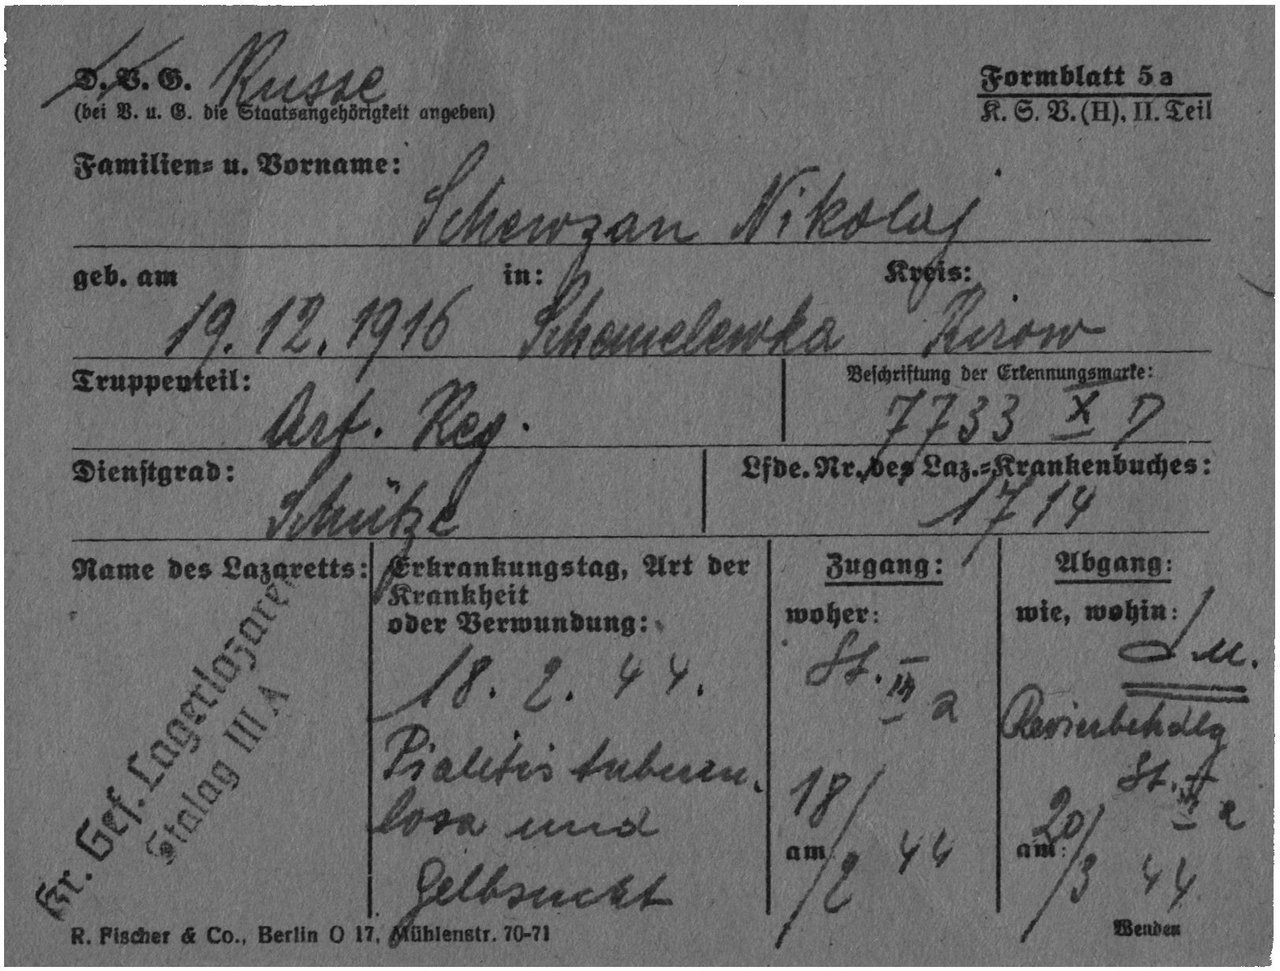 D. V. G. Russe
(bei V. u. G. die Staatsangehörigkeit angeben)
Formblatt 5a
K. S. V. (H), II. Teil
Familien- u. Vorname:
Schewzan Nikolaj
geb. am in: Kreis:
19. 12. 1916 Schemelewka Kirow
Truppenteil: Beschriftung der Erkennungsmarke:
Art. Reg. 7733 X D
Dienstgrad: Lfde. Nr. des Laz.-Krankenbuches:
Schütze 1714
Name des Lazaretts:
Kr. Gef. Lagerlazarett
Stalag III A
Erkrankungstag, Art der
Krankheit
oder Verwundung:
18. 2. 44.
und
Gelbsucht
Zugang:
woher:
St. III a
am 18/2 44
Abgang:
wie, wohin:
Revierbehdlg
St. III a
am: 20/3 44
R. Fischer & Co., Berlin O 17, Mühlenstr. 70-71
Wenden